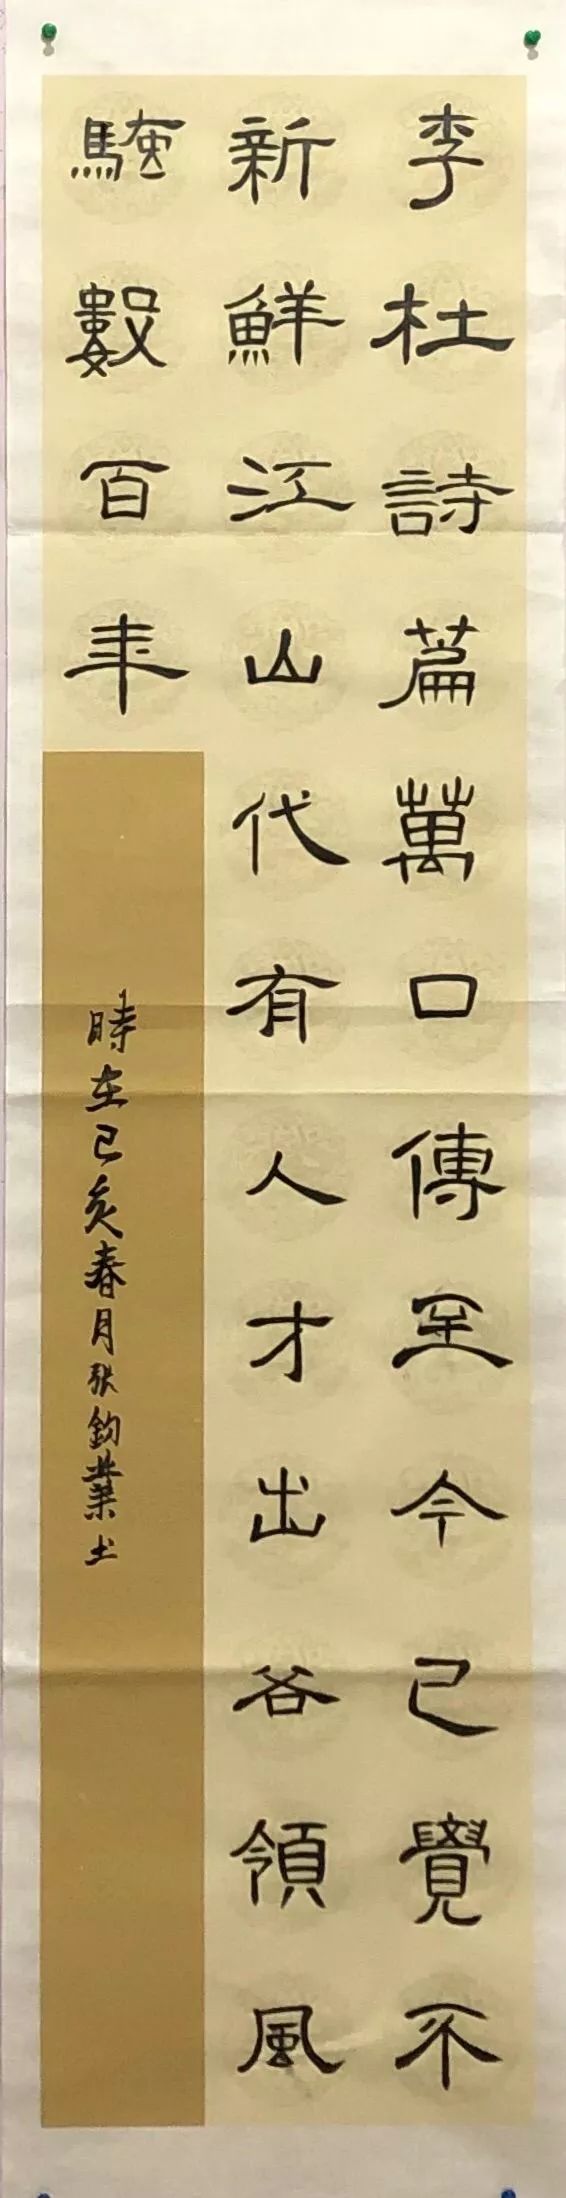 李杜詩篇萬口傳至今已覺不
新鮮江山代有人才出各領風
騷數百年
時在己亥春月张鈞業书